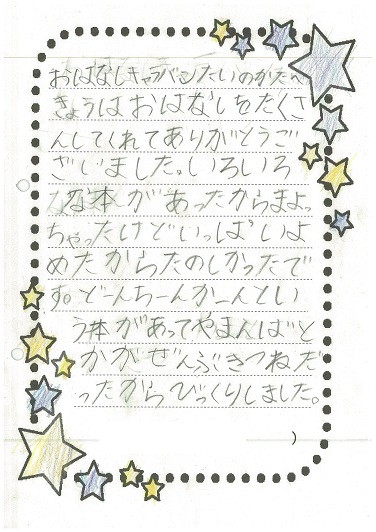 おはなしキャラバンたいのかたへ
きょうはおはなしをたくさ
んしてくれてありがとうご
ざいました。いろいろ
な本があったからまよっ
ちゃったけどいっぱいよ
めたからたのしかったで
す。どーんちーんかーんとい
う本があってやまんばと
かがぜんぶきつねだ
ったからびっくりしました。